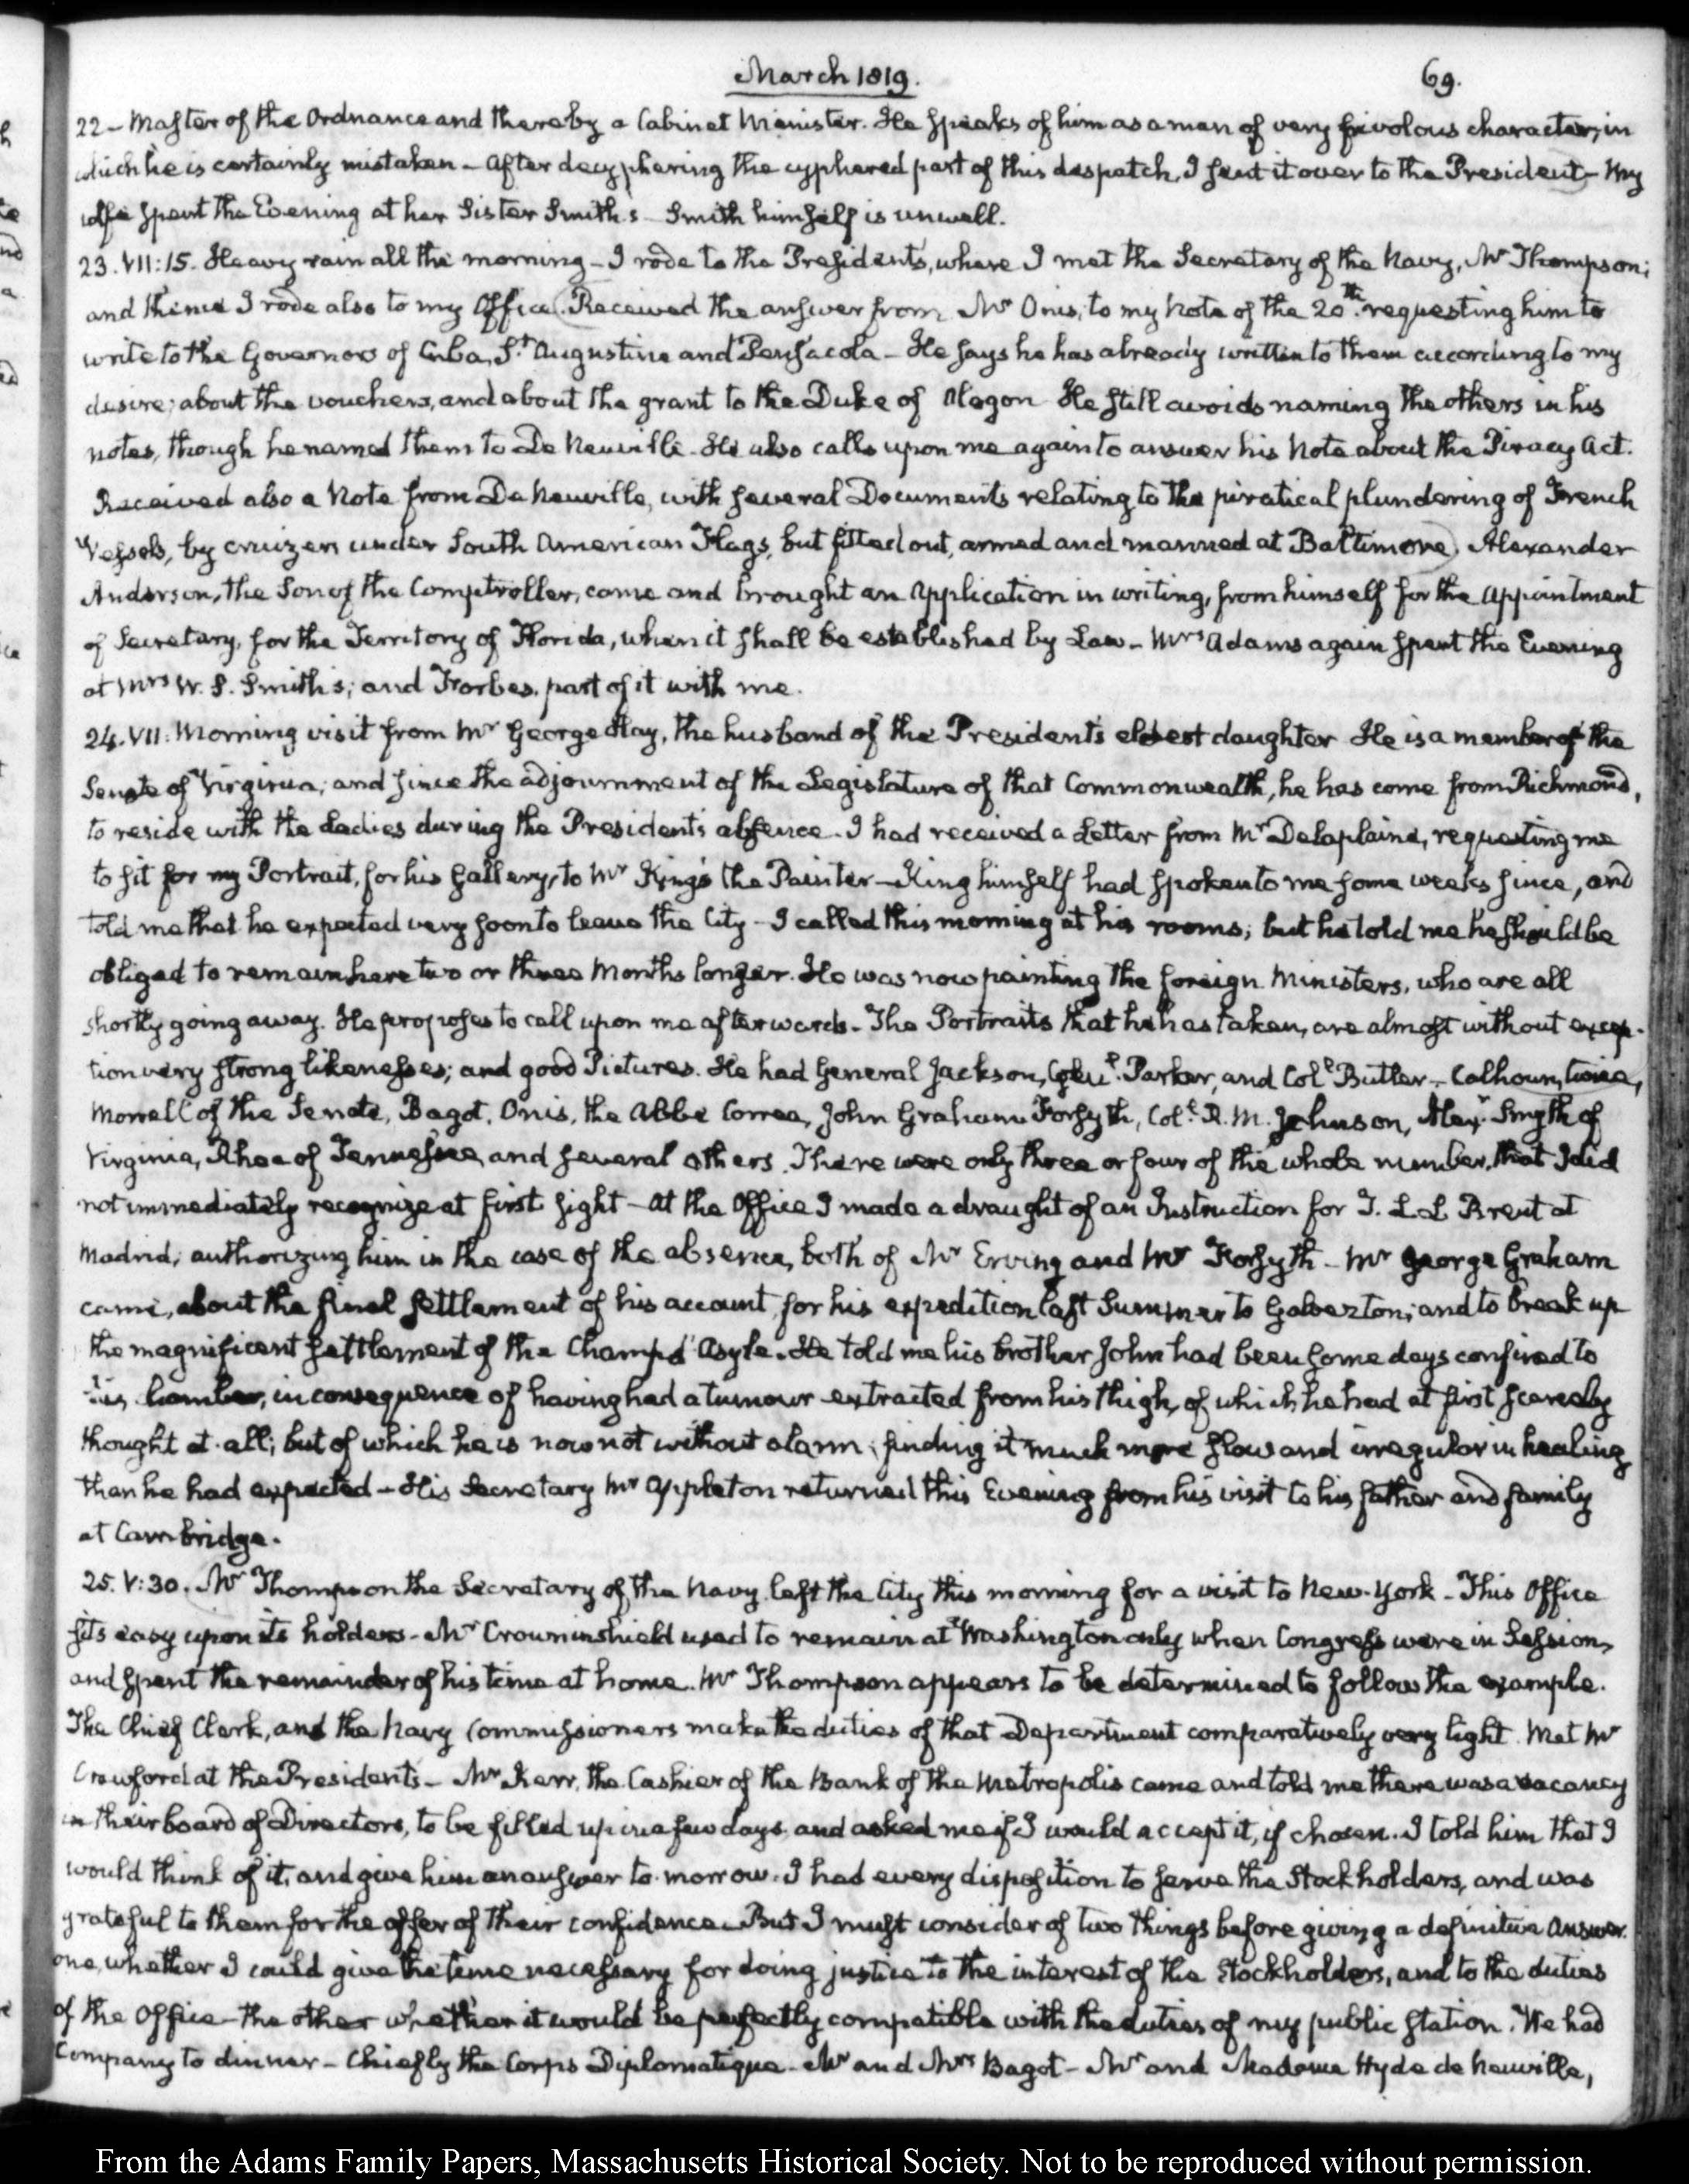 March 1819.
69.
22 - Master of the Ordnance and thereby a Cabinet Minister. He speaks of him as a man of very frivolous character, in
which he is certainly mistaken - After decyphering the cyphered part of this despatch, I sent it over to the President - My
wife spent the Evening at her Sister Smith's - Smith himself is unwell.
23. VII:15. Heavy rain all the morning - I rode to the President's, where I met the Secretary of the Navy, Mr Thompson;
and thence I rode also to my Office. Received the answer from Mr Onis, to my Note of the 20th. requesting him to
write to the Governors of Cuba, St Augustine and Pensacola - He says he has already written to them according to my
desire; about the vouchers, and about the grant to the Duke of Alagon He still avoids naming the others in his
notes, though he named them to De Neuville. He also calls upon me again to answer his Note about the Piracy Act.
Received also a Note from De Neuville, with several Documents relating to the piratical plundering of French
Vessels, by cruizers under South American Flags, but fitted out, armed and manned at Baltimore. Alexander
Anderson, the Son of the Comptroller, came and brought an Application in writing, from himself for the appointment
of Secretary, for the Territory of Florida, when it shall be established by Law - Mrs Adams again spent the Evening
at Mrs W. S. Smith's; and Forbes, part of it with me.
24. VII. Morning visit from Mr George Hay, the husband of the President's eldest daughter He is a member of the
Senate of Virginia; and since the adjournment of the Legislature of that Commonwealth, he has come from Richmond,
to reside with the Ladies during the President's absence. I had received a Letter from Mr Delaplaine, requesting me
to sit for my Portrait, for his Gallery, to Mr King's the Painter - King himself had spoken to me some weeks since, and
told me that he expected very soon to leave the City - I called this morning at his rooms; but he told me he should be
obliged to remain here two or three Months longer. He was now painting the foreign Ministers, who are all
shortly going away. He proposes to call upon me afterwards - The Portraits that he has taken, are almost without excep-
tion very strong likenesses; and good Pictures. He had General Jackson, Parker, and Coll Butler - Calhoun, twice,
Morrell of the Senate, Bagot, Onis, the Abbé Correa, John Graham Forsyth, Coll. R. M. Johnson, Alexr. Smyth of
Virginia, Rhea of Tennessee, and several others. There were only three or four of the whole number, that I did
not immediately recognize at first sight - At the Office I made a draught of an Instruction for T. L L Brent at
Madrid; authorizing him in the case of the absence, both of Mr Erving and Mr Forsyth - Mr George Graham
came, about the final settlement of his account, for his expedition last Summer to Galvezton; and to break up
the magnificent settlement of the Champ d'Asyle. He told me his brother John had been some days confined to
his chamber, in consequence of having had a tumour extracted from his thigh, of which he had at first scarcely
thought at all; but of which he is now not without alarm; finding it much more slow and irregular in healing
than he had expected - His Secretary Mr Appleton returned this Evening from his visit to his father and family
at Cambridge.
25. V:30. Mr Thompson the Secretary of the Navy left the City this morning for a visit to New-York - This Office
sits easy upon its holders - Mr Crowninshield used to remain at Washington only when Congress were in Session,
and spent the remainder of his time at home. Mr Thompson appears to be determined to follow the example.
The Chief Clerk, and the Navy Commissioners make the duties of that Department comparatively very light. Met Mr
Crawford at the President's - Mr Kerr, the Cashier of the Bank of the Metropolis came and told me there was a vacancy
in their board of Directors, to be filled up in a few days, and asked me if I would accept it, if chosen. I told him that I
would think of it, and give him an answer to-morrow. I had every disposition to serve the Stockholders, and was
grateful to them for the offer of their confidence. But I must consider of two things before giving a definitive answer.
one, whether I could give the time necessary for doing justice to the interest of the Stockholders, and to the duties
of the Office - the other whether it would be perfectly compatible with the duties of my public station. We had
Company to dinner - Chiefly the Corps Diplomatique - Mr and Mrs Bagot - Mr and Madame Hyde de Neuville,
From the Adams Family Papers, Massachusetts Historical Society. Not to be reproduced without permission.